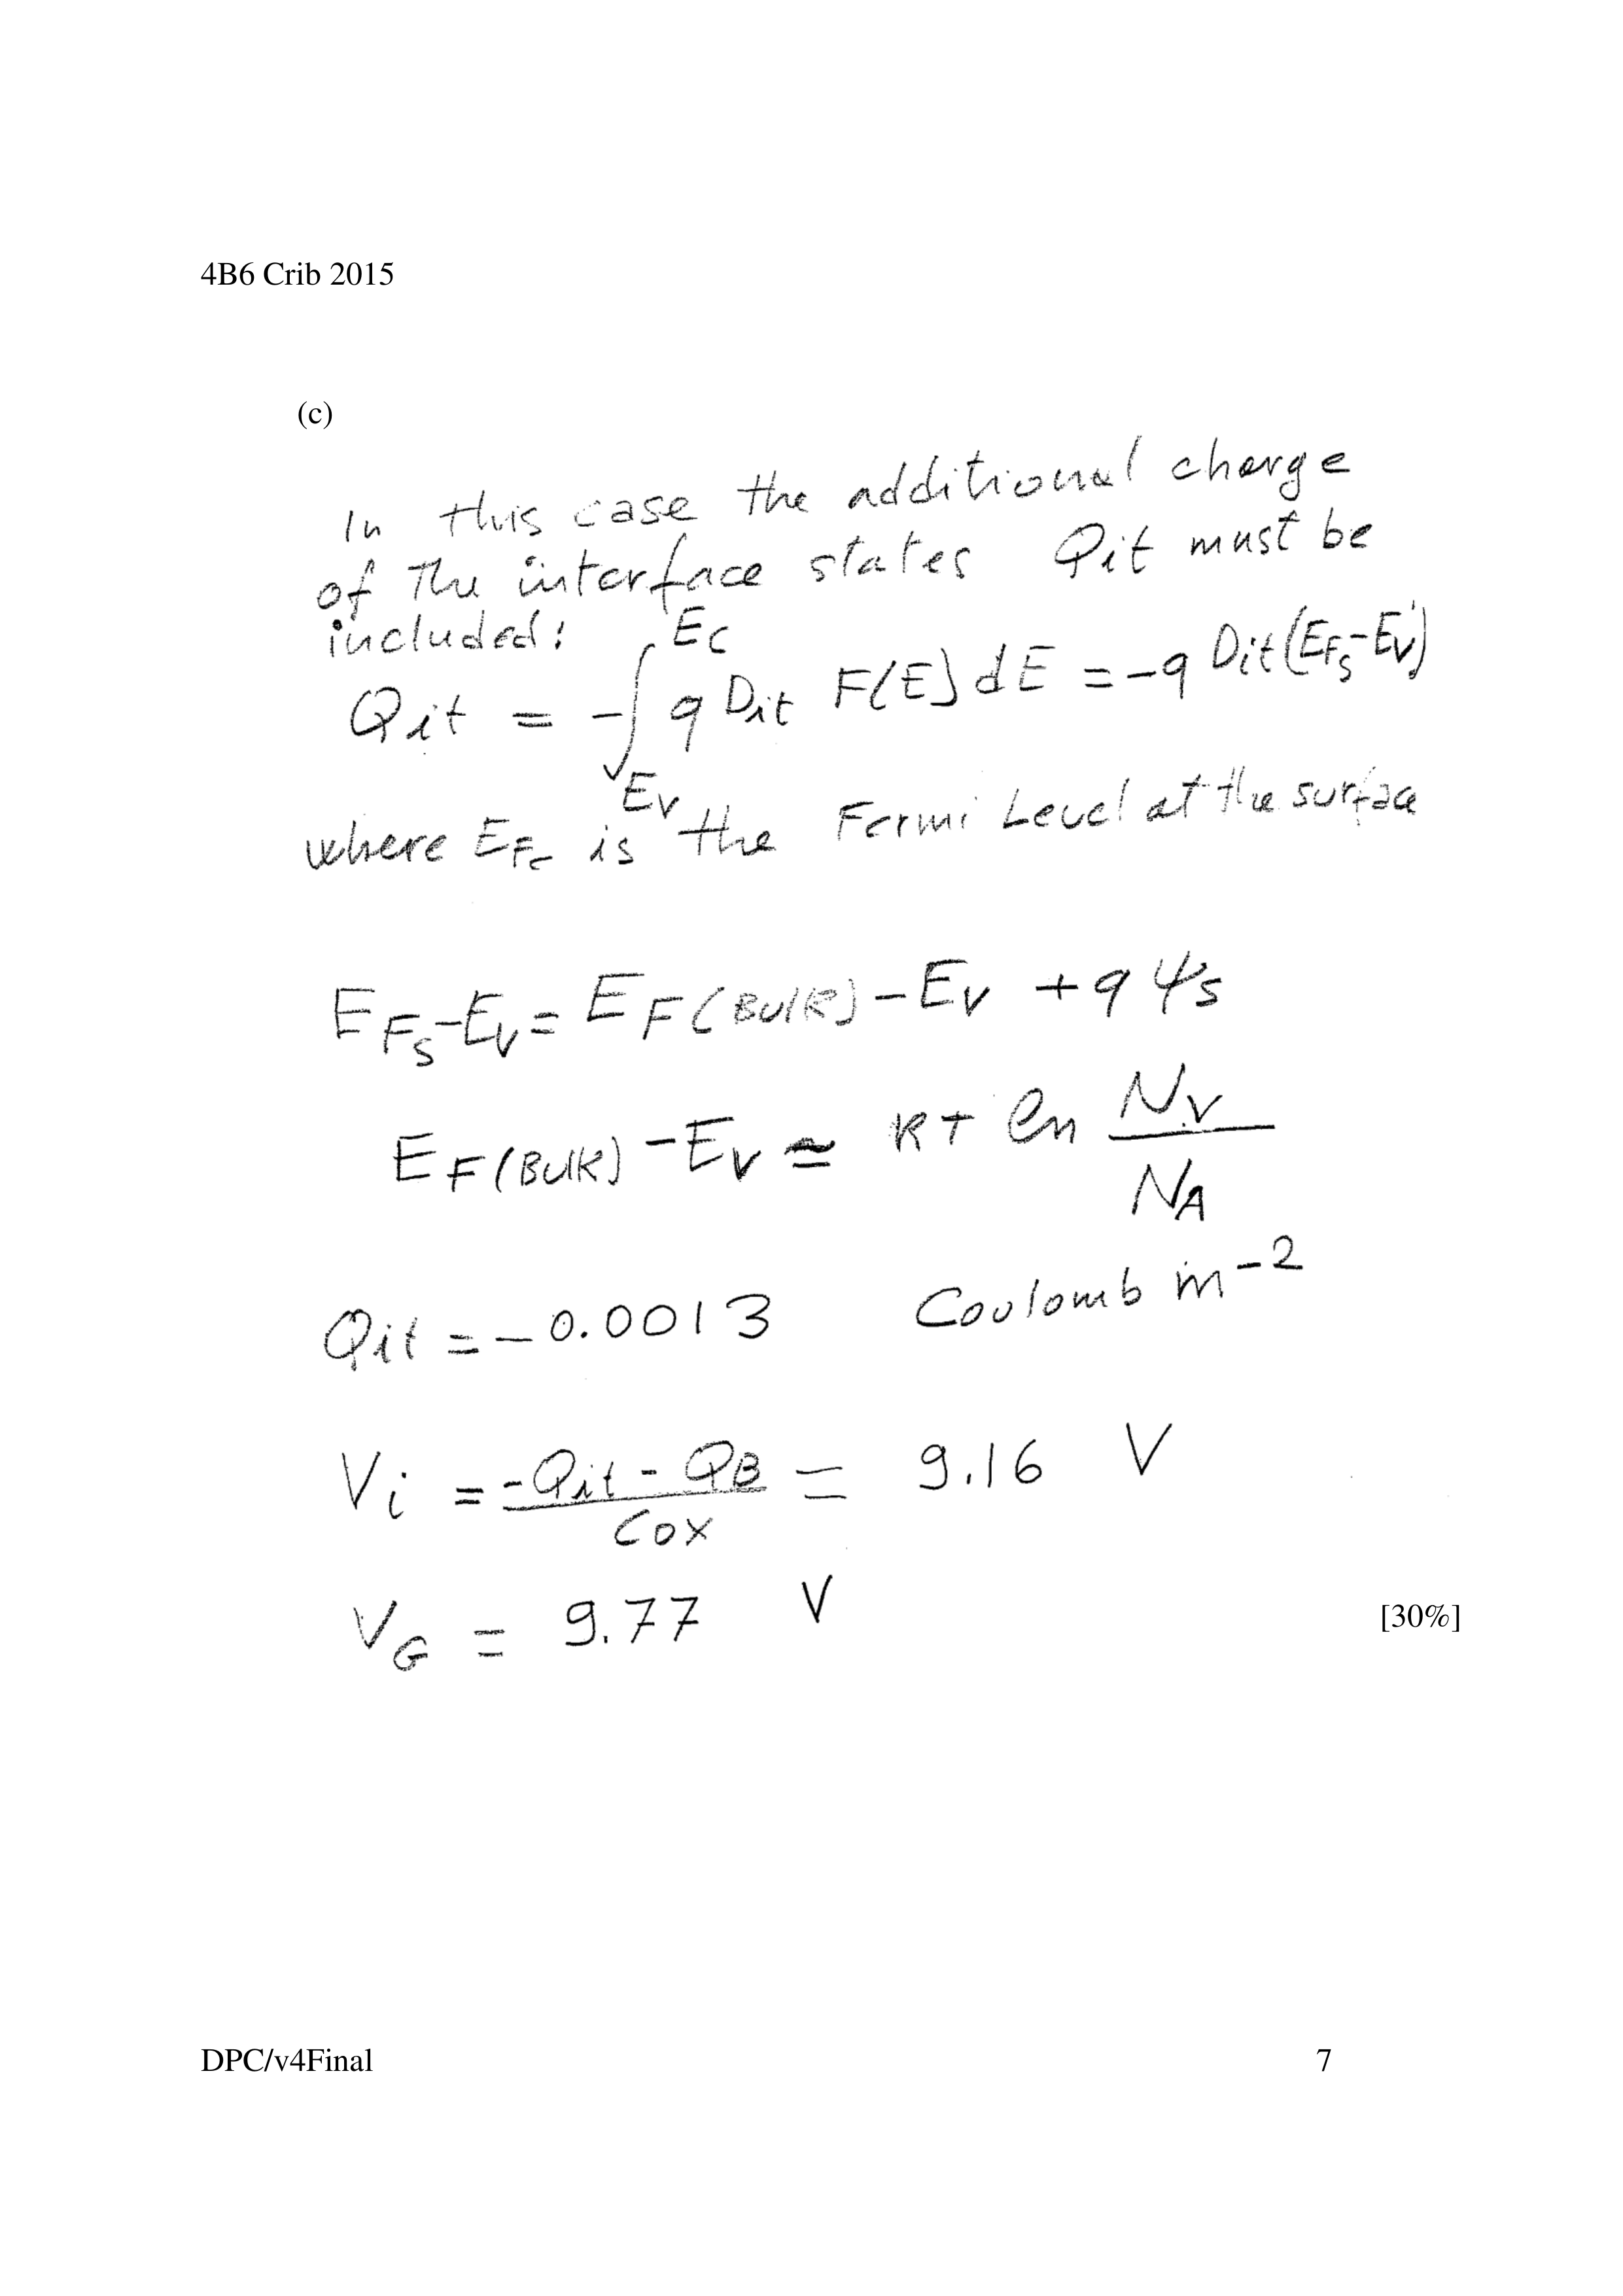 4B6 Crib 2015
(c)
In this case the additional charge
of The interface states Qit must be
included:
Qit = -∫_{Ev}^{Ec} q Dit F(E) dE = -q Dit(E_{Fs}-Ev)
where E_{Fs} is the Fermi Level at the surface
E_{Fs}-Ev = E_{F(Bulk)} - Ev + q Ψs
E_{F(Bulk)} - Ev ≃ KT ln \frac{N_V}{N_A}
Qit = -0.0013 Coulomb m^{-2}
Vi = \frac{-Qit - QB}{Cox} = 9.16 V
V_G = 9.77 V
[30%]
DPC/v4Final 7